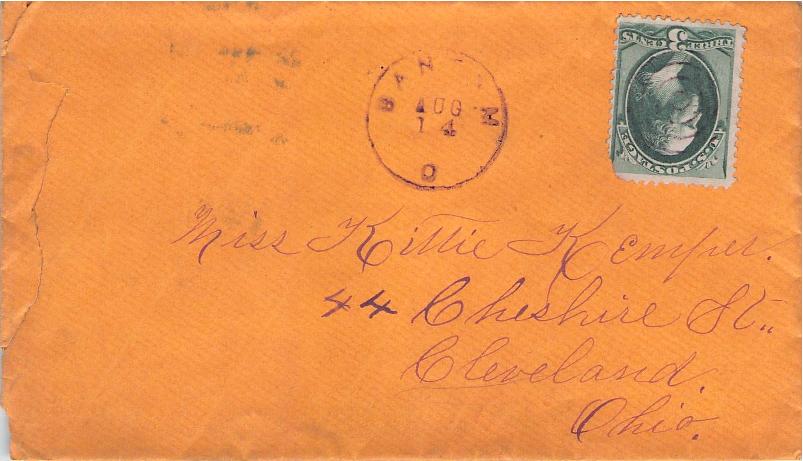 BANTAM
AUG
14
O
U.S. POSTAGE
3
THREE CENTS
Miss Kittie Kemper.
44 Cheshire St.,
Cleveland,
Ohio.